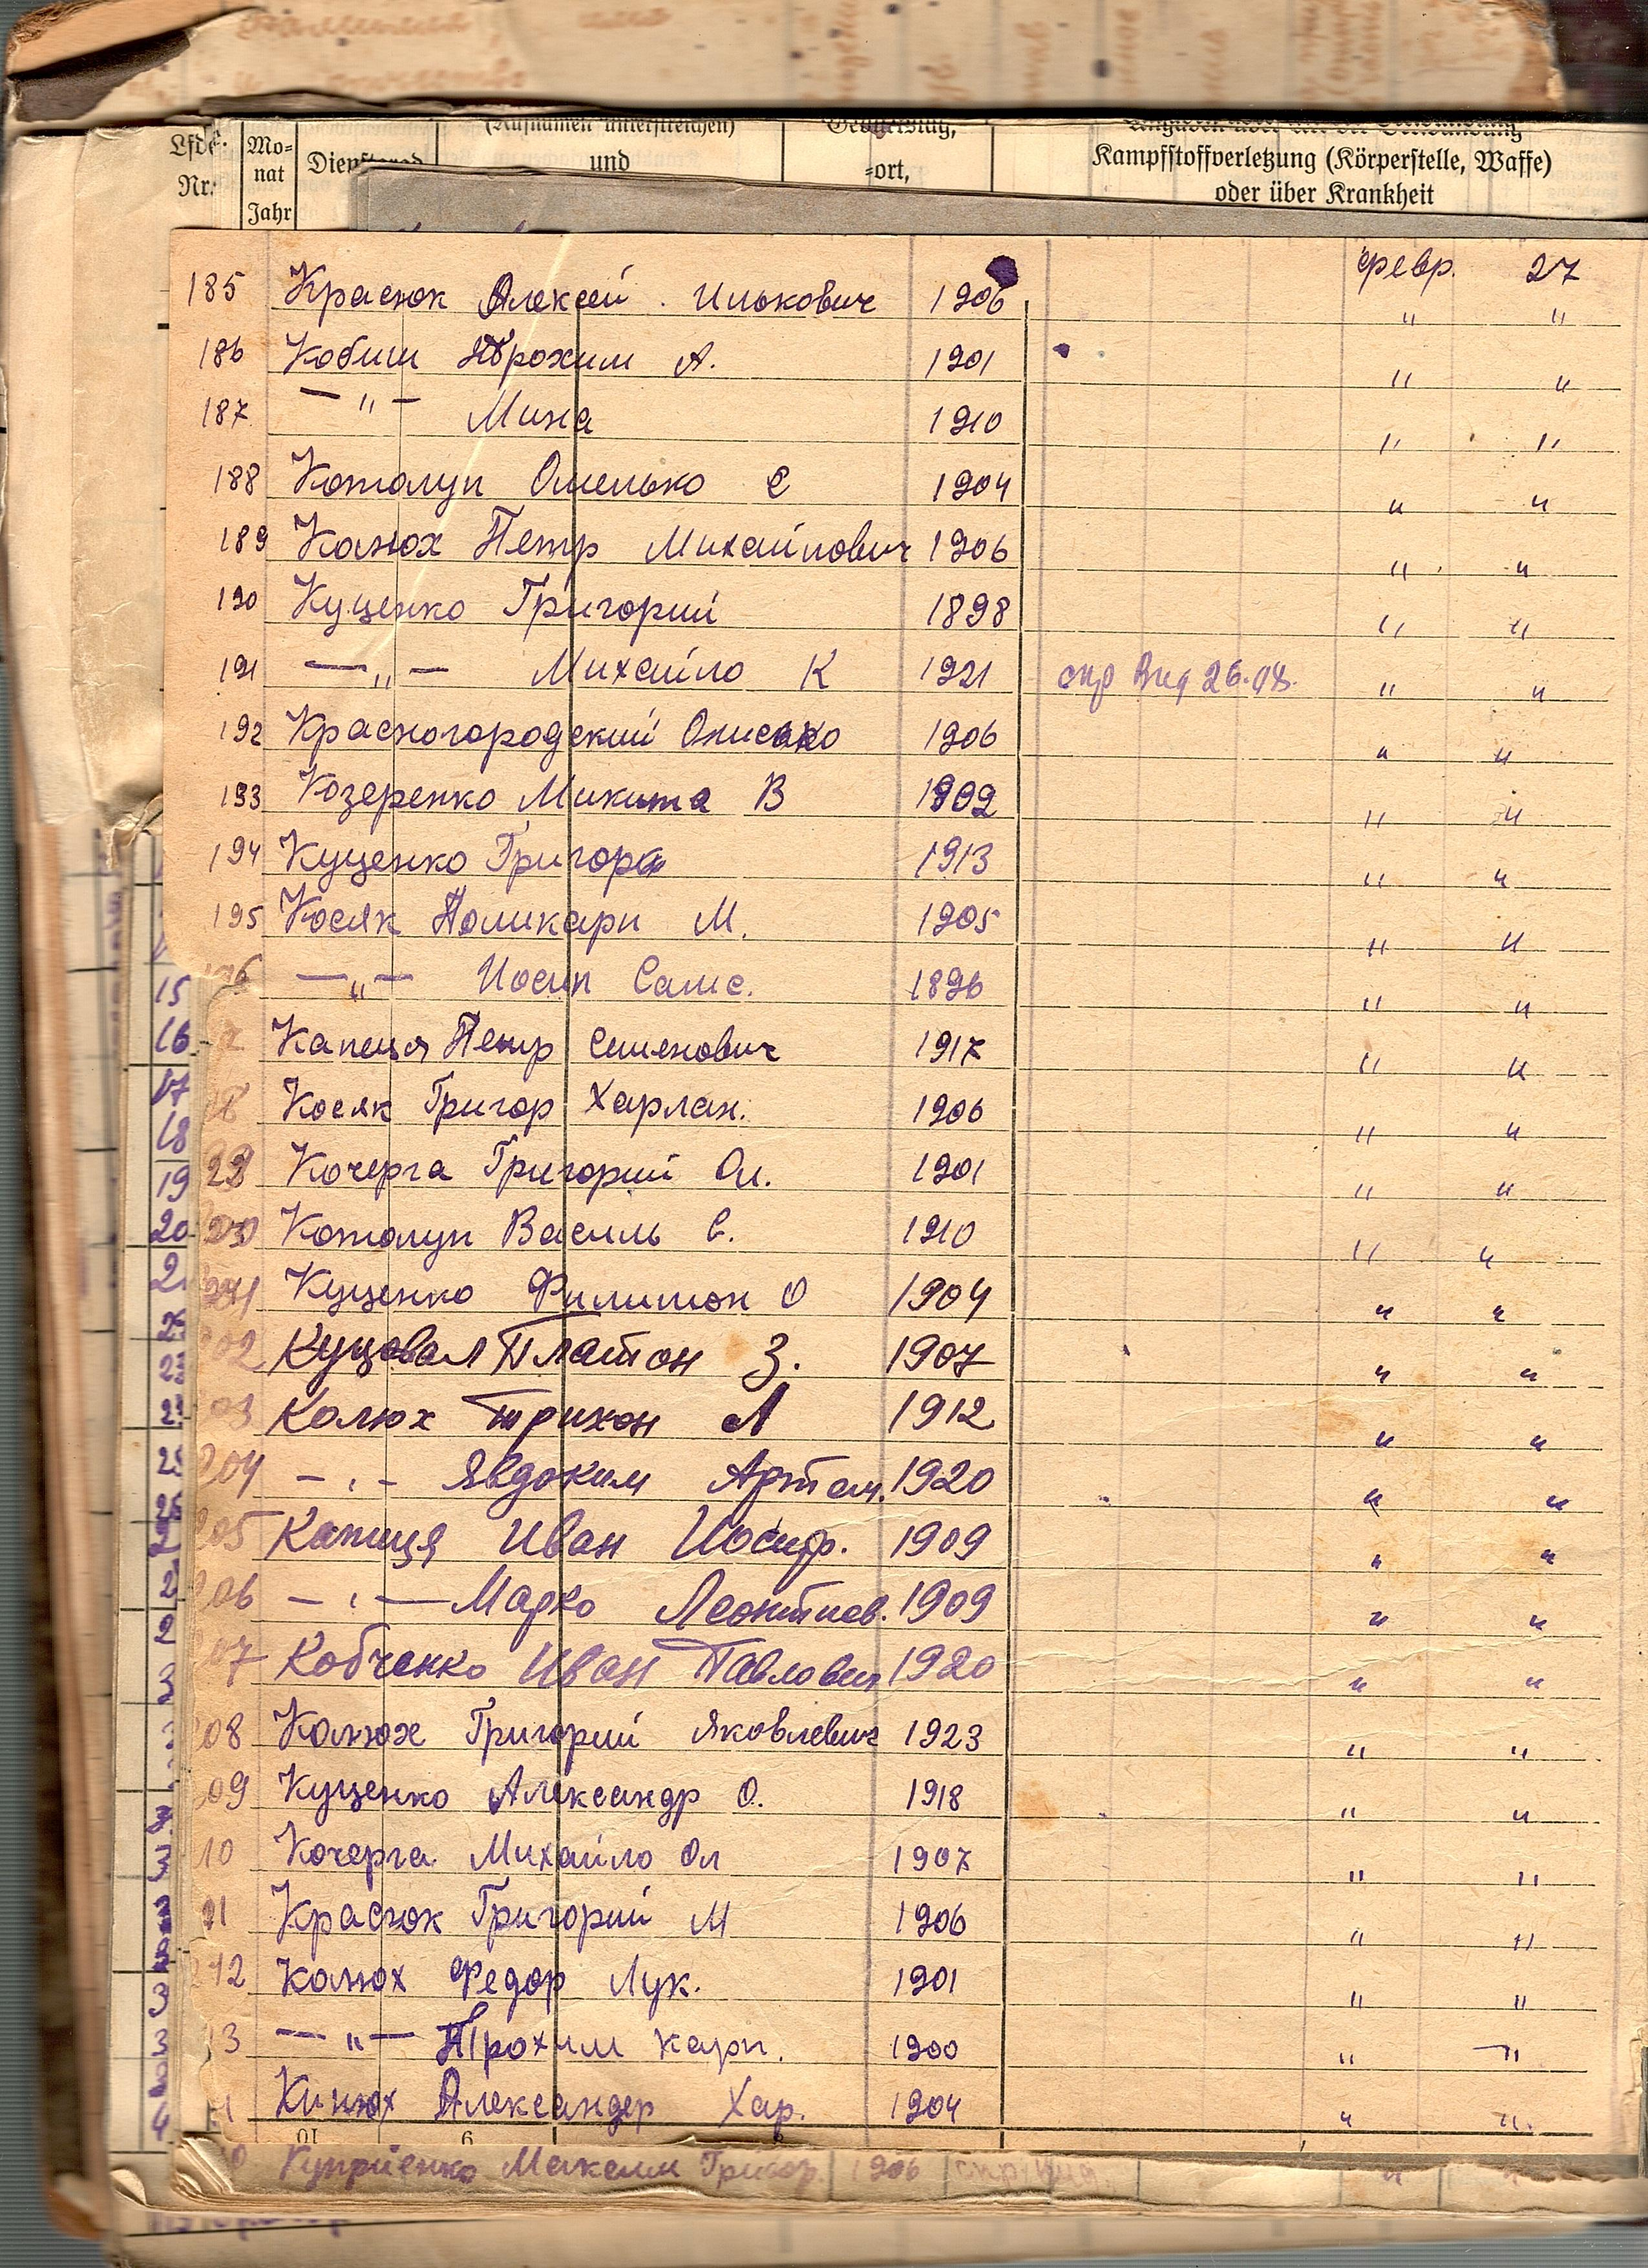 Lfde. Nr.
Mo-
nat
Jahr
(Rufnamen unterstreichen)
und
-ort,
Kampfstoffverletzung (Körperstelle, Waffe)
oder über Krankheit
февр. 27
185 Красюк Алексей. Илькович 1906 " "
186 Кобиш Трохим А. 1901 " "
187 —"— Мина 1910 " "
188 Котолуп Омелько С 1904 " "
189 Калюх Петр Михайлович 1906 " "
190 Куценко Григорий 1898 " "
191 —"— Михайло К 1921 26.04. " "
192 Красногородский Онисько 1906 " "
193 Козеренко Микита В 1902 " "
194 Куценко Григора 1913 " "
195 Косяк Поликарп М. 1905 " "
—"— Иосип Самс. 1896 " "
Капиця Петр Семенович 1917 " "
Косяк Григор Харлан. 1906 " "
Кочерга Григорий Ол. 1901 " "
Котолуп Василь С. 1910 " "
Куценко Филимон О 1904 " "
02 Куцовал Платон З. 1907 " "
03 Калюх Трихон Л 1912 " "
204 —"— Явдоким Артем. 1920 " "
205 Капиця Иван Иосиф. 1909 " "
206 —"— Марко Леонтиев. 1909 " "
07 Кобченко Иван Павлович 1920 " "
08 Калюх Григорий Яковлевич 1923 " "
09 Куценко Александр О. 1918 " "
10 Кочерга Михайло Ол 1907 " "
11 Красюк Григорий М 1906 " "
212 Калюх Федор Лук. 1901 " "
13 —"— Трохим Карп. 1900 " "
Кинюх Александер Хар. 1904 " "
Куприенко Максим Григор. 1906
15
16
17
18
19
20